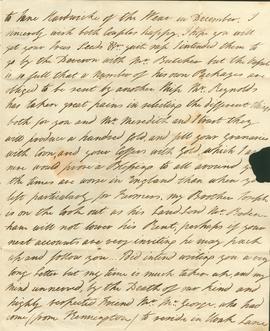 to Jane Hardwicke of the Weare in December. I
sincerely wish both Couples happy. I hope you will
get your Trees Seeds &c quite safe I intended them to
go by the Dawson with Mr. Butcher but the Vessel
is so full that a number of his own Packages are
obliged to be sent by another Ship Mr. Reynolds
has taken great pains in labelling the different things
both for you and Mr. Meredith and I trust they
will produce a hundred fold and fill your Granaries
with Corn, and your Coffers with Gold which I am
sure would prove a Blessing to all around you
the times are worse in England than when you
left particularly for Farmers, my Brother Joseph
is on the look out as his Landlord Mr. Boden
ham will not lower his Rent, perhaps if your
next accounts are very inviting he may pack
up and follow you. I did intend writing you a very
long letter but my time is much taken up, and my
mind unnerved, by the Death of our kind and
highly respected Friend Mr. George, who had
come (from Kennington) to reside in York Lane